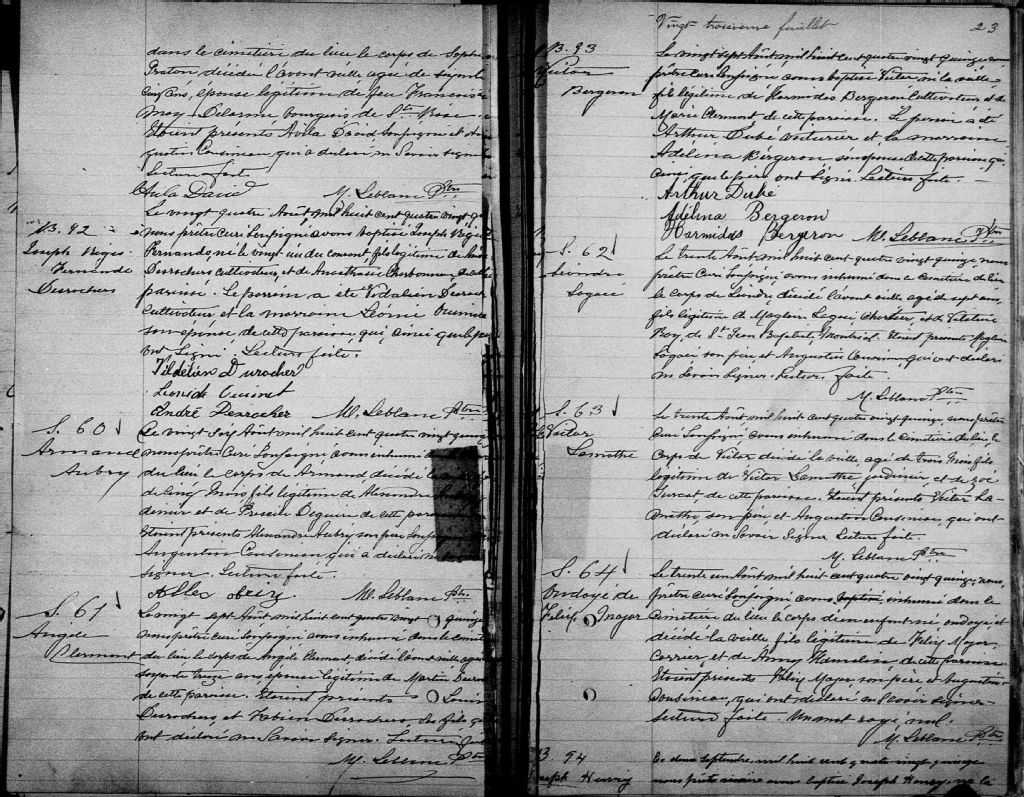 dans le cimetière du lieu le corps de
décédé l'avant veille agé de
cinq ans, épouse légitime de feu
May Delorme bourgeois de Ste Rose
Etaient présents Avila David soussigné et
Cousineau, qui a déclaré ne savoir signer
Lecture faite
Avila David M. Leblanc Ptre
B. 92
Joseph Régis
Fernando
Durocher
Le vingt quatre Août mil huit cent quatre vingt
nous prêtre Curé soussigné avons baptisé Joseph Régis
Fernando, né le vingt un du courant fils légitime de
Durocher cultivateur, et de Anasthasie Charbonneau de cette
paroisse. Le parrain a été Vidalien Durocher
Cultivateur et la marraine Léonie Ouimet
son épouse de cette paroisse, qui, ainsi que le père
ont signé. Lecture faite.
Vildélien Durocher
Ouimet
André Desrocher M. Leblanc Ptre
S. 60
Armand
Aubry
Le vingt six Août mil huit cent quatre vingt quinze
nous prêtre Curé soussigné avons inhumé
du lieu le corps de Armand décédé
de cinq mois fils légitime de Alexandre
et de Deguire de cette paroisse
Etaient présents Alexandre Aubry son père
Augustin Cousineau, qui a déclaré ne
signer. Lecture faite.
M. Leblanc Ptre
S. 61
Angèle
Clermont
Le vingt sept Août mil huit cent quatre vingt quinze
nous prêtre curé soussigné avons inhumé dans le cimetière
du lieu le corps de Angèle Clermont, décédé l'avant veille agée
soixante treize ans épouse légitime de Martin
de cette paroisse. Etaient présents Louis
Desrochers et Fabien Desrochers, ses fils qui
ont déclaré ne savoir signer. Lecture faite
M. Leblanc Ptre
Vingt troisième feuillet 23
B. 93
Victor
Bergeron
Le vingt sept Août mil huit cent quatre vingt quinze nous
prêtre Curé soussigné avons baptisé Victor né la veille
fils légitime de Hormidas Bergeron Cultivateur et de
Marie Clermont de cette paroisse. Le parrain a été
Arthur Dubé voiturier et la marraine
Adélina Bergeron son épouse de cette paroisse qui,
ainsi que le père ont signé. Lecture faite. —
Arthur Dubé
Adélina Bergeron
Hormidas Bergeron M. Leblanc Ptre
S. 62
Léandre
Lagacé
Le trente Août mil huit cent quatre vingt quinze, nous
prêtre Curé soussigné, avons inhumé dans le Cimetière du lieu
le Corps de Léandre décédé l'avant veille agé de sept ans,
fils légitime de Magloire Lagacé, Charretier, et de
Roy, de St Jean Baptiste, Montréal. Etaient présents Magloire
Lagacé son père et Augustin Cousineau qui ont déclaré
ne savoir signer. Lecture faite.
M. Leblanc Ptre
S. 63
Victor
Lamothe
Le trente Août mil huit cent quatre vingt quinze, nous prêtre
Curé soussigné, avons inhumé dans le Cimetière du lieu, le
Corps de Victor décédé la veille, agé de trois mois fils
légitime de Victor Lamothe, jardinier, et de Zoé
Turcot de cette paroisse. Etaient présents Victor La-
mothe, son père, et Augustin Cousineau, qui ont
déclaré ne savoir signer Lecture faite.
M. Leblanc Ptre
S. 64
Ondoyé de
Félix Major
Le trente un Août mil huit cent quatre vingt quinze, nous,
prêtre Curé soussigné avons baptisé inhumé dans le
Cimetière du lieu le corps d'un enfant né ondoyé et
décédé la veille fils légitime de Félix Major,
Carrier, et de Anny Hamelin de cette paroisse
Etaient présents Félix Major son père et Augustin
Cousineau, qui ont déclaré ne savoir signer
Lecture faite. Un mot rayé nul.
M. Leblanc Ptre
B. 94
Joseph Henry
Le deux septembre mil huit cent quatre vingt quinze
nous prêtre vicaire avons baptisé Joseph Henry né la